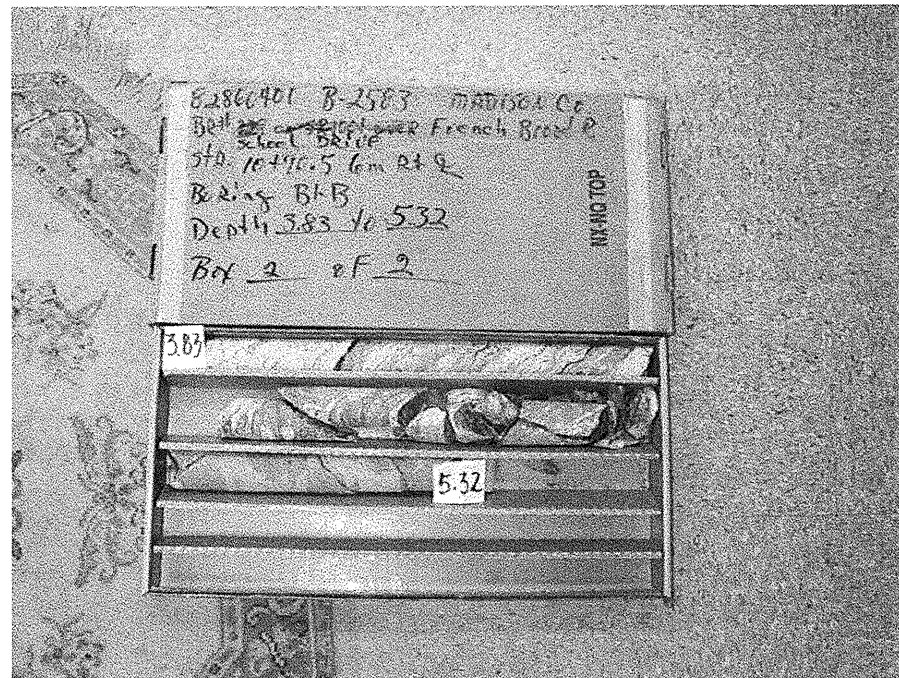 B-2583 MADISON Co
French Broad R
School Drive
Sta. 10+90.5 6m Rt
Boring B1-B
Depth 3.83 to 5.32
Box 2 oF 2
NX-NO TOP
3.83
5.32